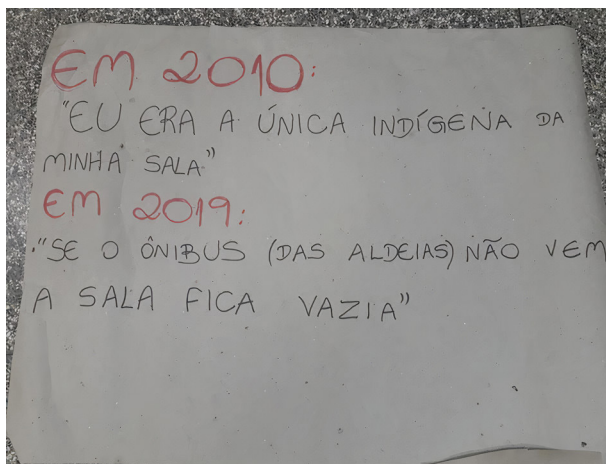 EM 2010:
"EU ERA A ÚNICA INDÍGENA DA
MINHA SALA"
EM 2019:
"SE O ÔNIBUS (DAS ALDEIAS) NÃO VEM
A SALA FICA VAZIA"